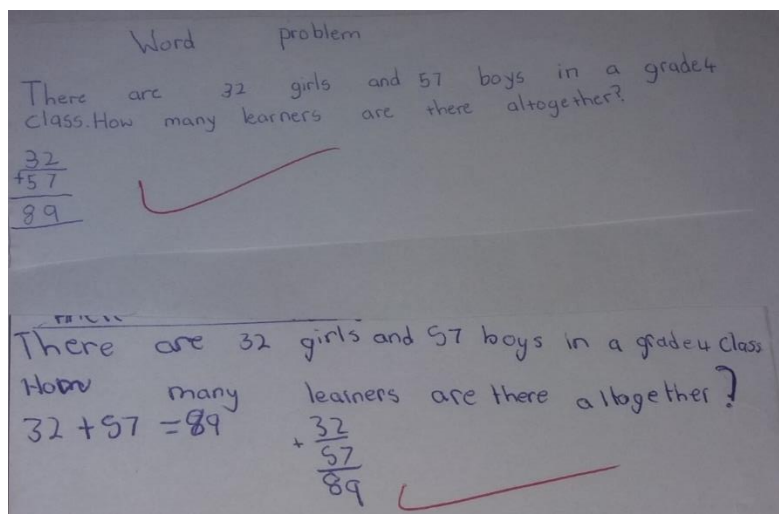 Word problem
There are 32 girls and 57 boys in a grade4
class.How many learners are there altogether?
32
+57
89
There are 32 girls and 57 boys in a grade4 class
How many learners are there altogether?
32+57=89
+ 32
57
89